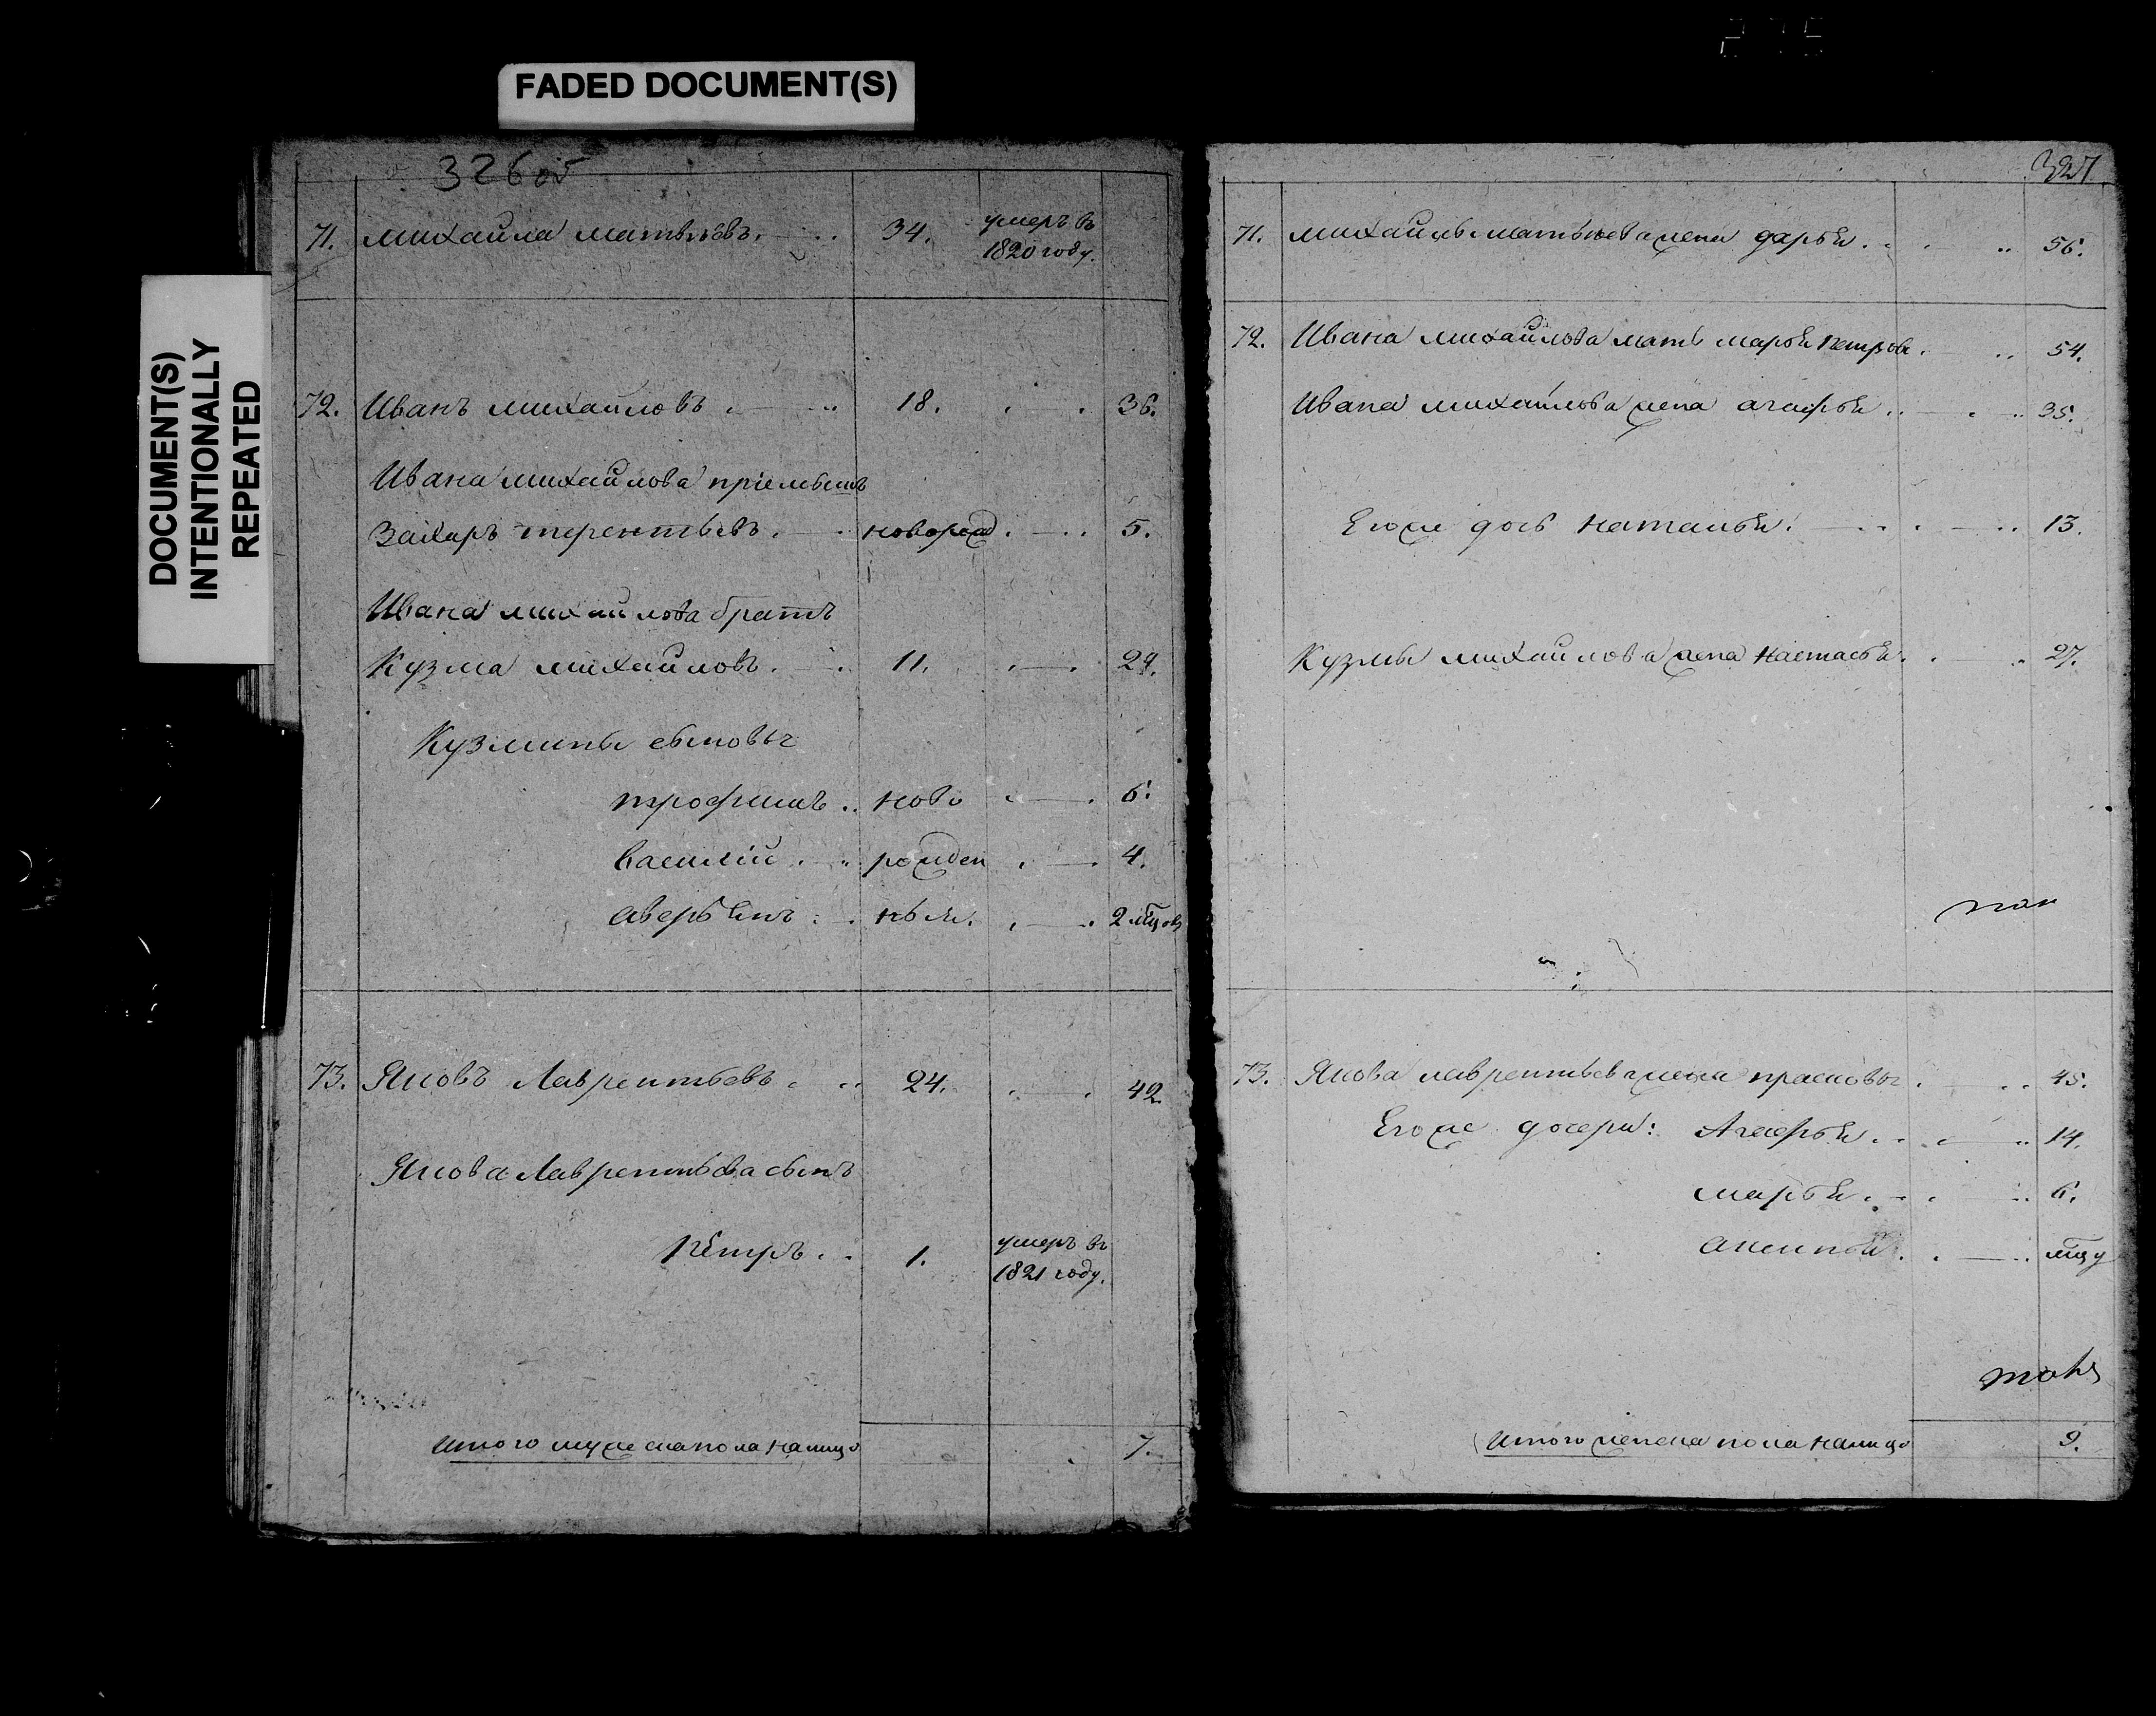 FADED DOCUMENT(S)
DOCUMENT(S)
INTENTIONALLY
REPEATED
326 об
71. Михайла Матвѣевъ. 34. умеръ въ
1820 году.
72. Иванъ Михайловъ 18. 36.
Ивана Михайлова пріемышъ
Захаръ Терентьевъ. новорожд. 5.
Ивана Михайлова братъ
Кузма Михайловъ. 11. 29.
Кузмины сыновья
Трофимъ .. ново 6.
Василій рожден 4.
Аверьянъ ныя. 2 мцов
73. Яковъ Лаврентьевъ 24. 42
Якова Лаврентьева сынъ
Пётръ 1. умеръ въ
1821 году.
Итого мужеска пола налицо 7.
327
71. Михайлы Матвѣева жена Дарья. 56.
72. Ивана Михайлова мать Марья Петрова. 54.
Ивана Михайлова жена Агафья 35.
Егоже дочь Наталья. 13.
Кузмы Михайлова жена Настасья. 27.
73. Якова Лаврентьева жена Прасковья 45.
Егоже дочери: Агафья 14.
Марья 6.
Аксинья. мцу
Итого женска пола налицо 9.